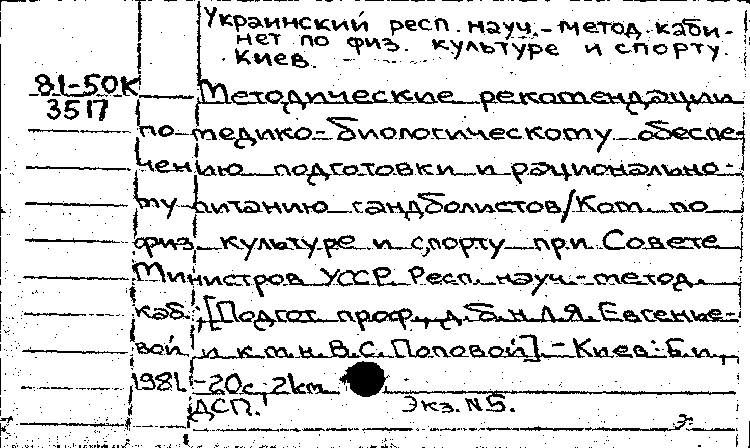 Украинский респ. науч.-метод. каби-
нет по физ. культуре и спорту.
Киев.
81-50К
3517
Методические рекомендации
по медико-биологическому обеспе-
чению подготовки и рационально-
му питанию гандболистов/Ком. по
физ. культуре и спорту при Совете
Министров УССР, Респ. науч.-метод.
каб.;[Подгот. проф., д.б.н Л.Я. Евгенье-
вой и к.т.н. В.С. Поповой].-Киев: Б.и.,
1981.-20с.; 2km
ДСП. Экз. N5.